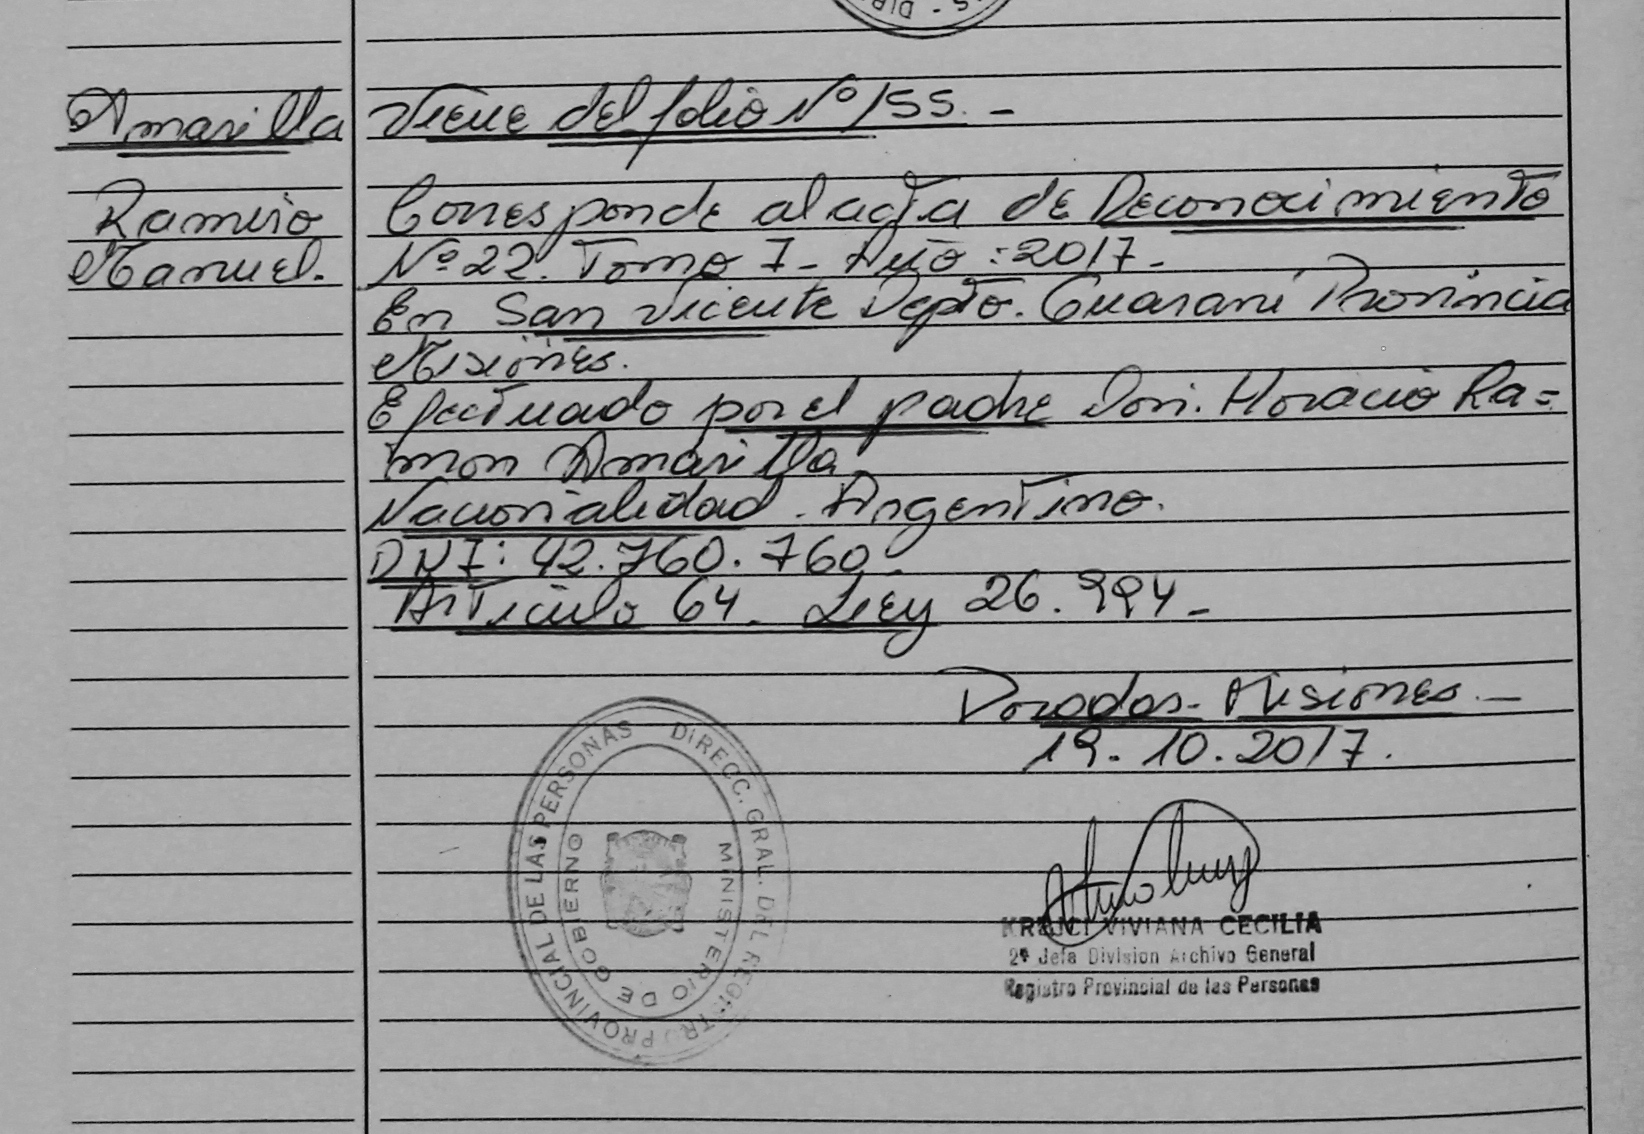 DIR
Amarilla Viene del folio Nº 155. -
Ramiro
Manuel.
Corresponde al acta de Reconocimiento
Nº 22. Tomo I - Año : 2017.
En San Vicente Depto. Guaraní Provincia
Misiones.
Efectuado por el padre Don. Horacio Ra=
mon Amarilla
Nacionalidad. Argentino.
DNI: 42.760.760.
Articulo 64. Ley 26.994 -
Posadas - Misiones. -
19. 10. 2017.
DIRECC. GRAL. DEL REGISTRO PROVINCIAL DE LAS PERSONAS
MINISTERIO DE GOBIERNO
KREJCI VIVIANA CECILIA
2ª Jefa Division Archivo General
Registro Provincial de las Personas